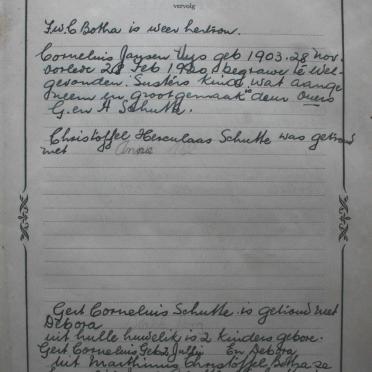 vervolg
F.W.C Botha is weer hertrou.
Cornelius Jansen Uys geb 1903.28 Nov.
oorlede 28 Feb 1920 begrawe te Wel-
gevonden. Susters kind wat aange
neem en grootgemaak is deur Ouers
G. en H Schutte.
Christoffel Herculaas Schutte was getroud
met Anna
Gert Cornelius Schutte is getroud met
Debora
uit hulle huwelik is 2 kinders gebore.
Gert Cornelius Geb 2 July En Debora
Marthinus Christoffel Botha